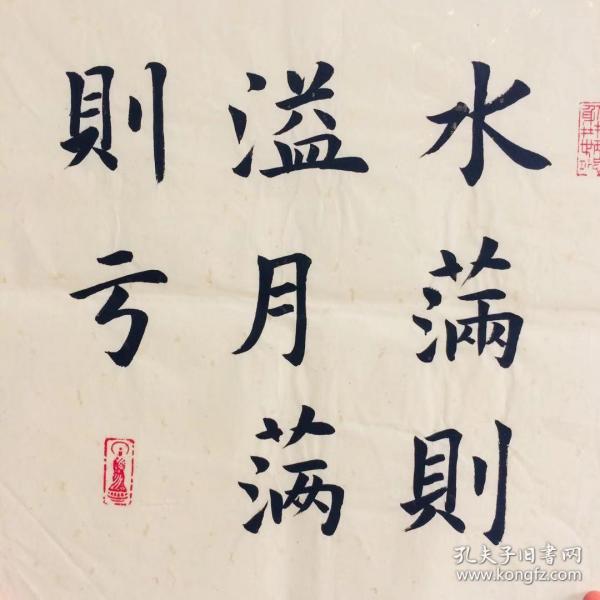 水滿則
溢月满
則亏
孔夫子旧书网
www.kongfz.com